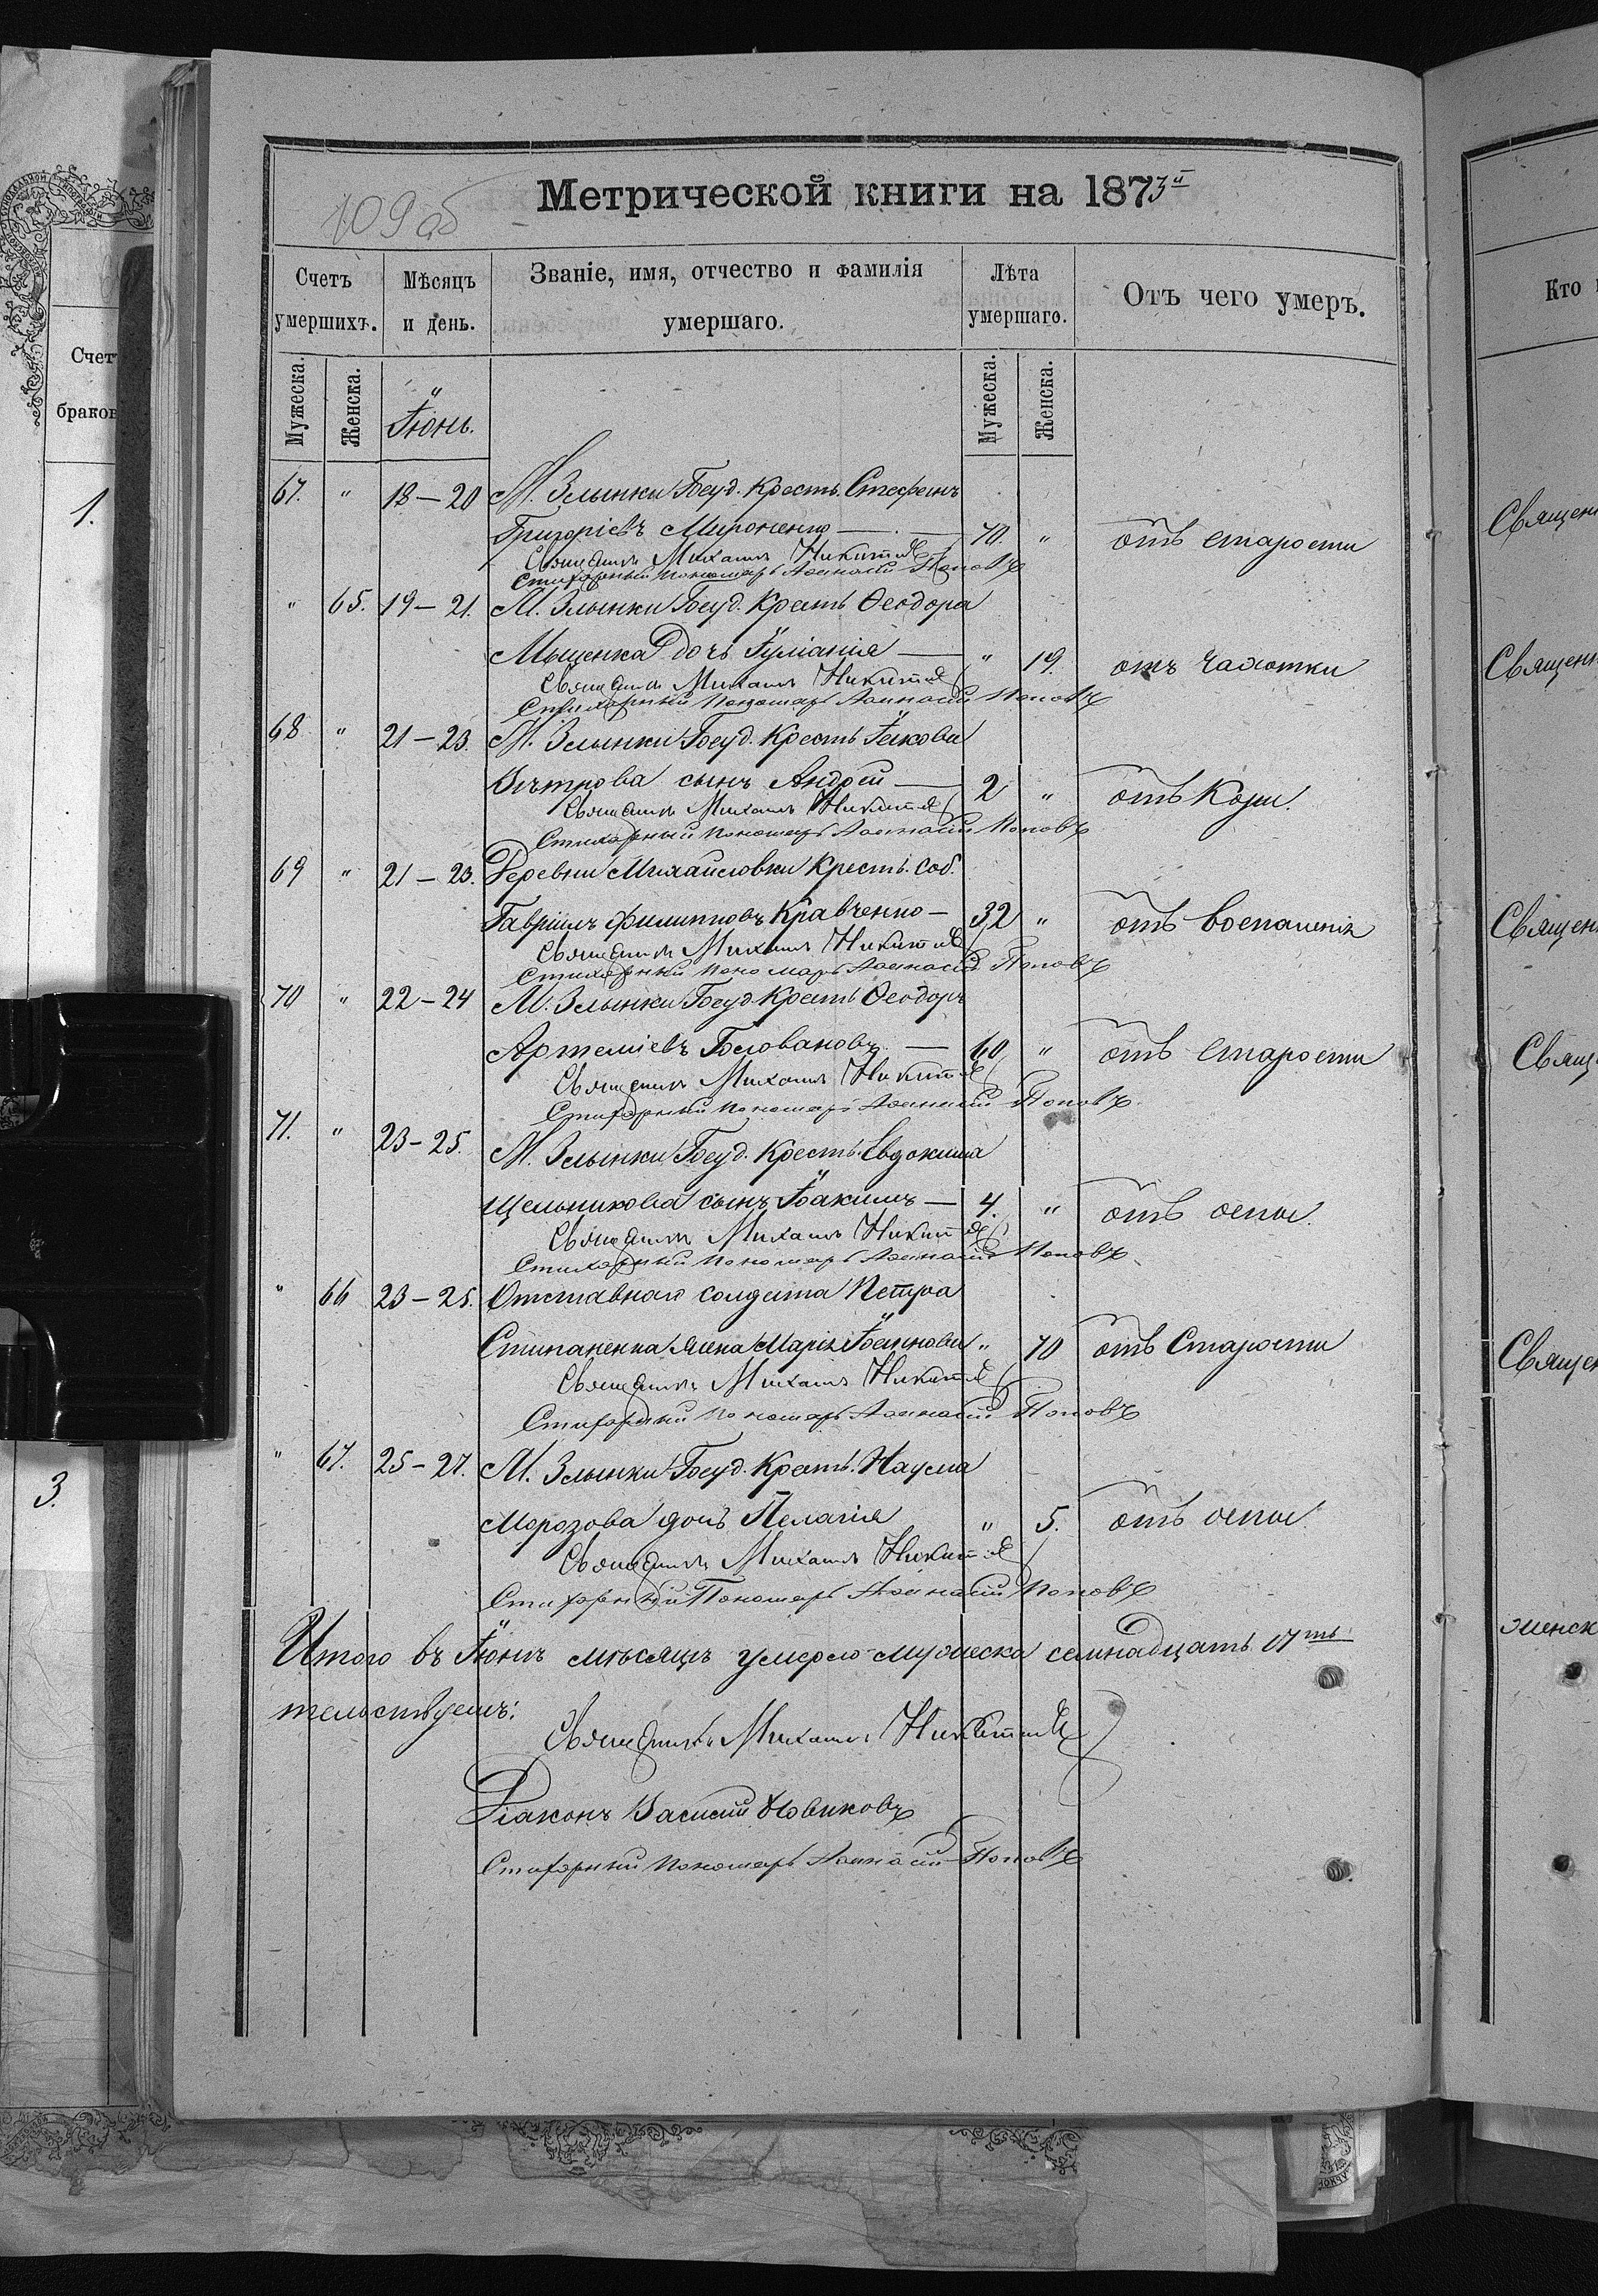 109 об
Метрической книги на 1873й
Счетъ умершихъ.
Мѣсяцъ и день.
Званіе, имя, отчество и фамилія умершаго.
Лѣта умершаго.
Отъ чего умеръ.
Мужеска.
Женска.
Мужеска.
Женска.
Іюнь.
67. " 18–20 М. Злынки Госуд. Крестьян. Стефанъ
Григоріевъ Мироненко — 70. " отъ старости
Священникъ Михаилъ Никитинъ
Стихарный Пономарь Аѳанасій Поповъ
" 65. 19–21. М. Злынки Госуд. Крестьян. Ѳеодора
Мыценка дочь Іуліанія — " 19. отъ чахотки
Священникъ Михаилъ Никитинъ
Стихарный Пономарь Аѳанасій Поповъ
68. " 21–23. М. Злынки Госуд. Крестьян. Іакова
Вѣтрова сынъ Андрей — 2 " отъ Кори.
Священникъ Михаилъ Никитинъ
Стихарный Пономарь Аѳанасій Поповъ
69 " 21–23. Деревни Михайловки Крестьян. Соб.
Гавріилъ Филипповъ Кравченко — 32 " отъ воспаленія
Священникъ Михаилъ Никитинъ
Стихарный Пономарь Аѳанасій Поповъ
70 " 22–24 М. Злынки Госуд. Крестьян. Ѳеодоръ
Артеміевъ Головановъ — 60 " отъ старости
Священникъ Михаилъ Никитинъ
Стихарный Пономарь Аѳанасій Поповъ
71. " 23–25. М. Злынки Госуд. Крестьян. Евдокима
Щельникова сынъ Іоакимъ — 4. " отъ оспы.
Священникъ Михаилъ Никитинъ
Стихарный Пономарь Аѳанасій Поповъ
" 66 23–25. Отставнаго солдата Петра
Стипаненка жена Марія Іоаннова " 70 отъ Старости
Священникъ Михаилъ Никитинъ
Стихарный Пономарь Аѳанасій Поповъ
" 67. 25–27. М. Злынки Госуд. Крестьян. Наума
Морозова дочь Пелагія " 5. отъ оспы.
Священникъ Михаилъ Никитинъ
Стихарный Пономарь Аѳанасій Поповъ
Итого въ Іюнѣ мѣсяцѣ умерло мужеска семнадцать 17ть
тельствуемъ:
Священникъ Михаилъ Никитинъ
Діаконъ Василій Новиковъ
Стихарный Пономарь Аѳанасій Поповъ
Счет
браков
1.
3.
Кто
Священ
Священ
Священ
Свящ
Священ
женск